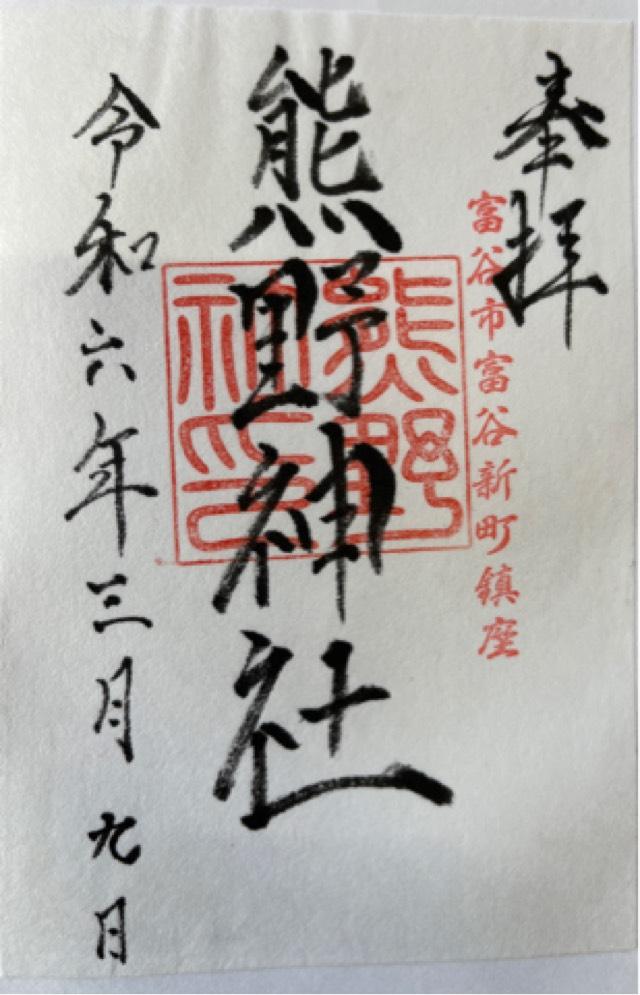 奉拝
富谷市富谷新町鎮座
熊野神社
熊野神印
令和六年三月九日